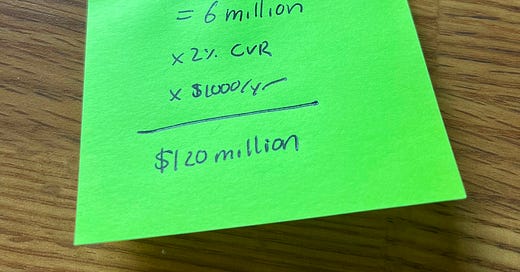 = 6 million
x 2% CVR
x $1000/yr
$120 million